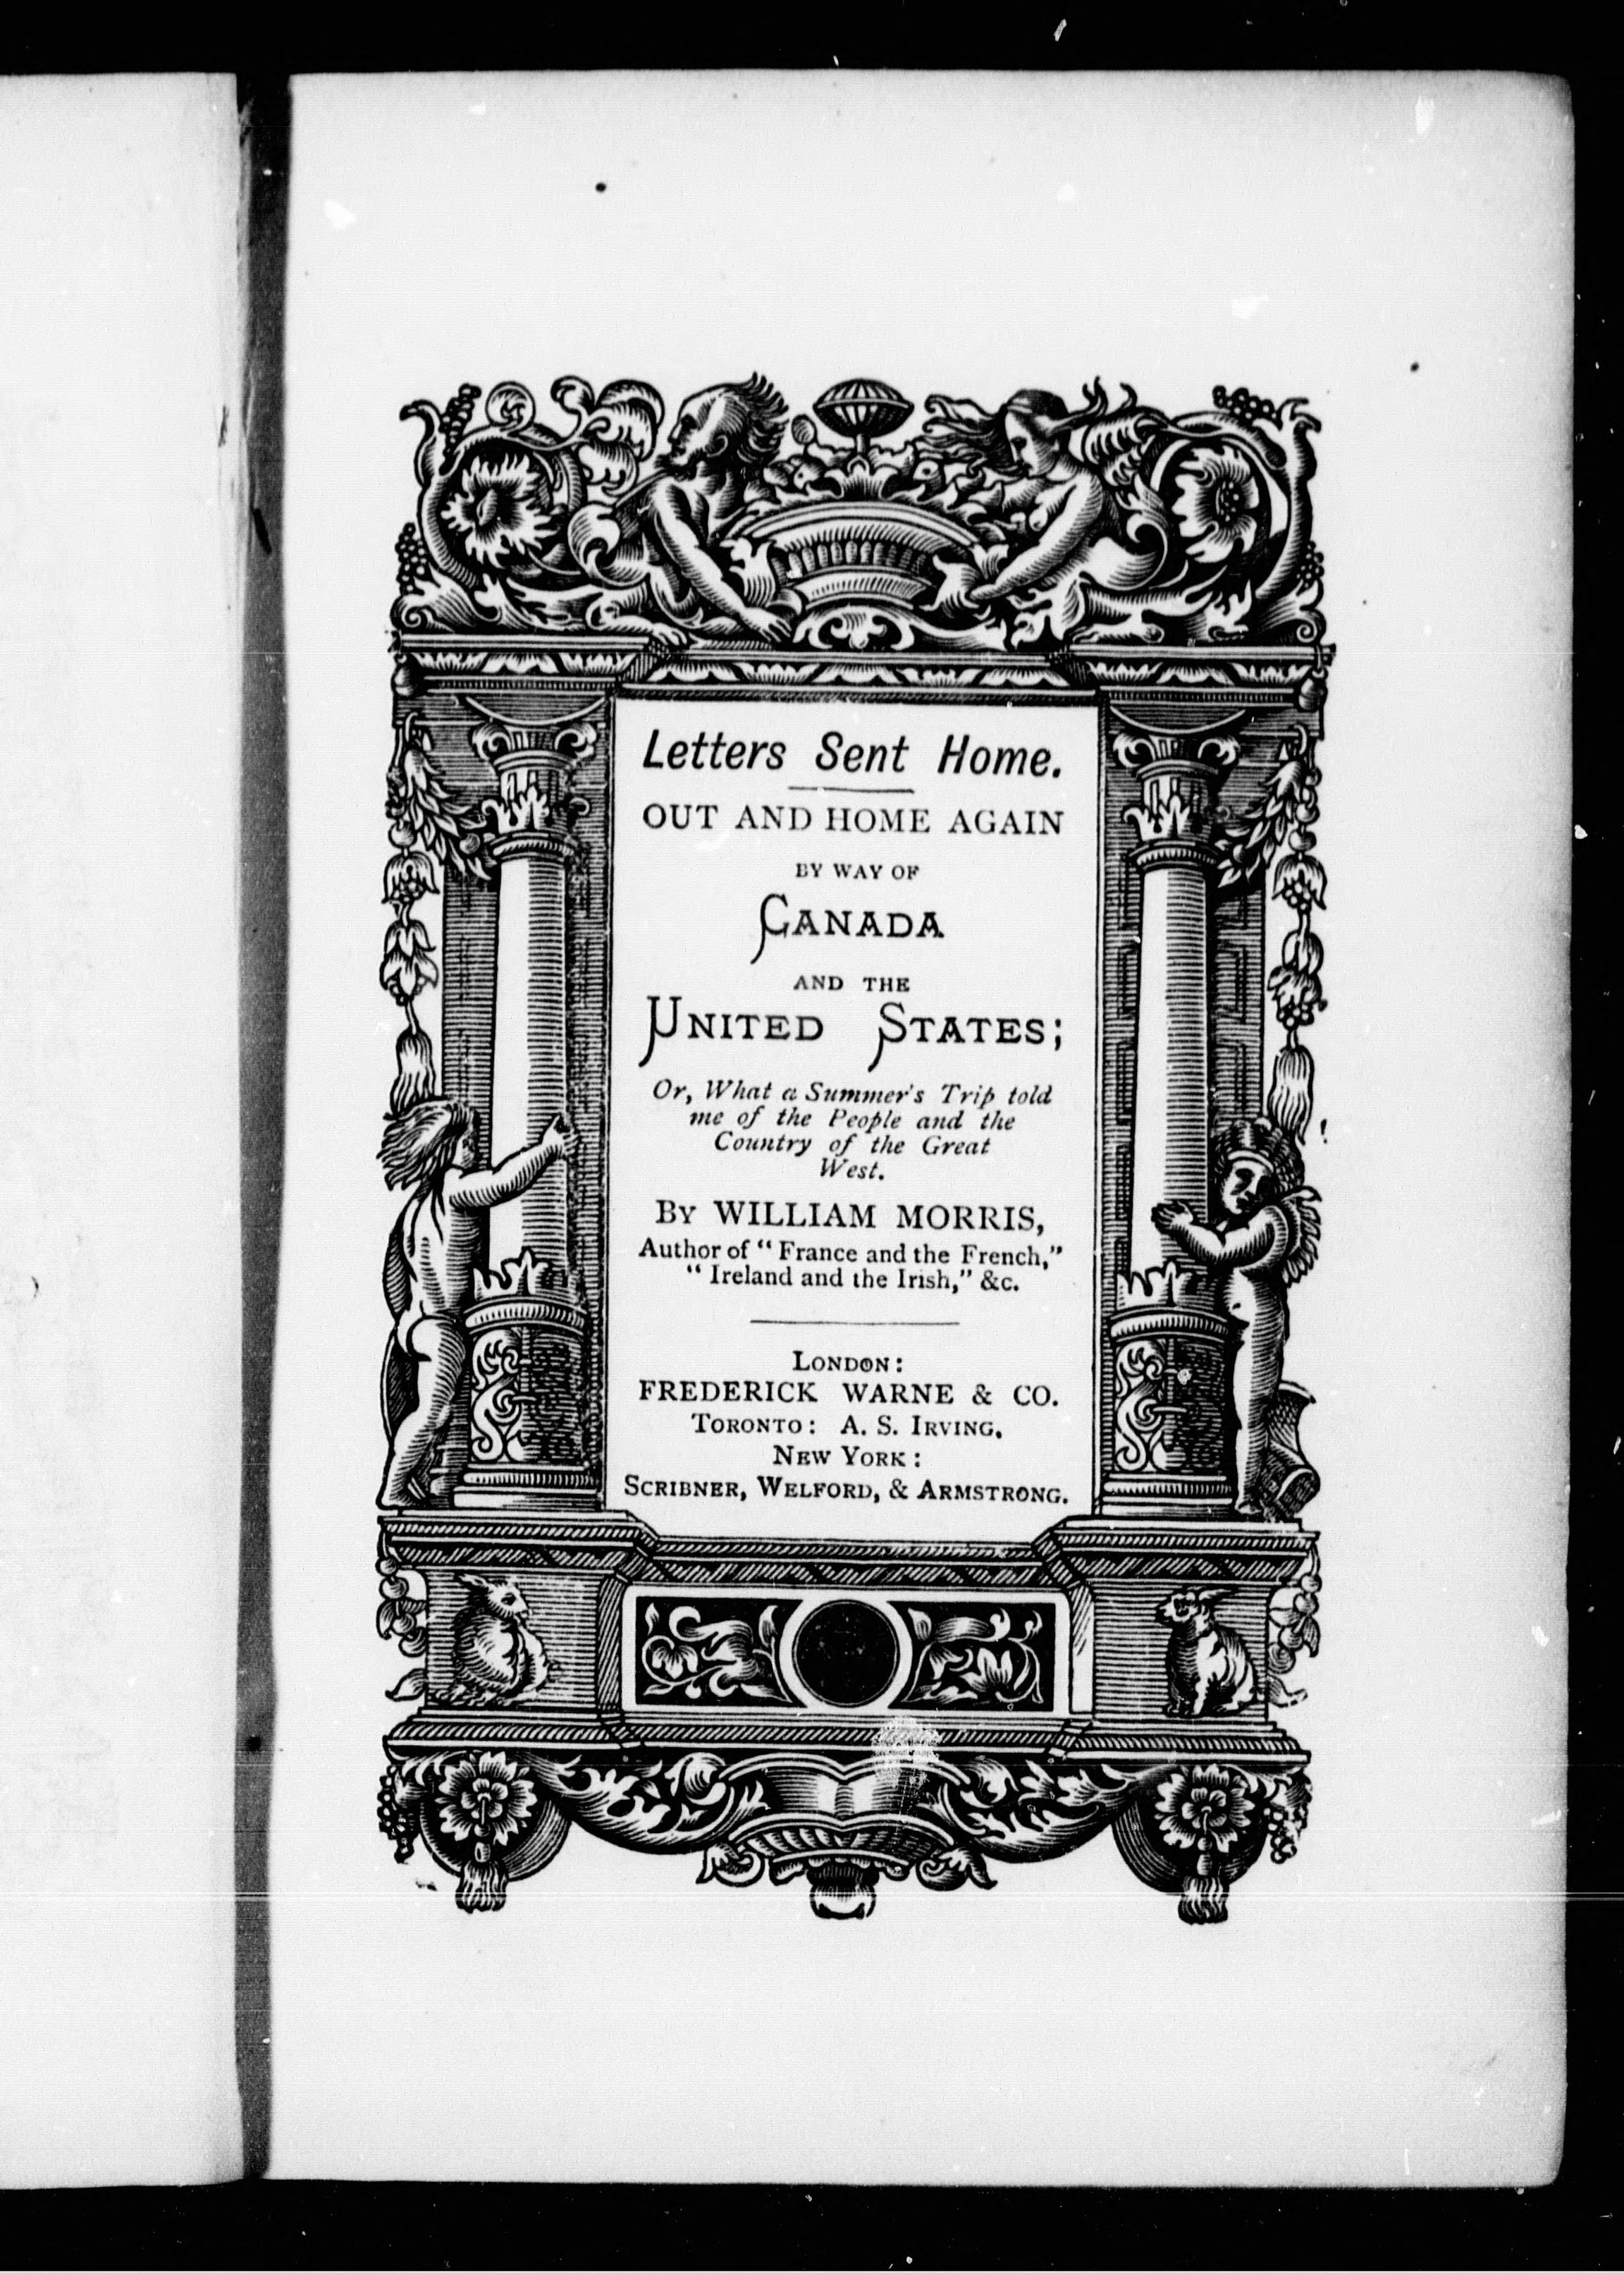 Letters Sent Home.
OUT AND HOME AGAIN
BY WAY OF
CANADA
AND THE
UNITED STATES;
Or, What a Summer's Trip told
me of the People and the
Country of the Great
West.
BY WILLIAM MORRIS,
Author of "France and the French,"
"Ireland and the Irish," &c.
LONDON:
FREDERICK WARNE & CO.
TORONTO: A. S. IRVING.
NEW YORK:
SCRIBNER, WELFORD, & ARMSTRONG.